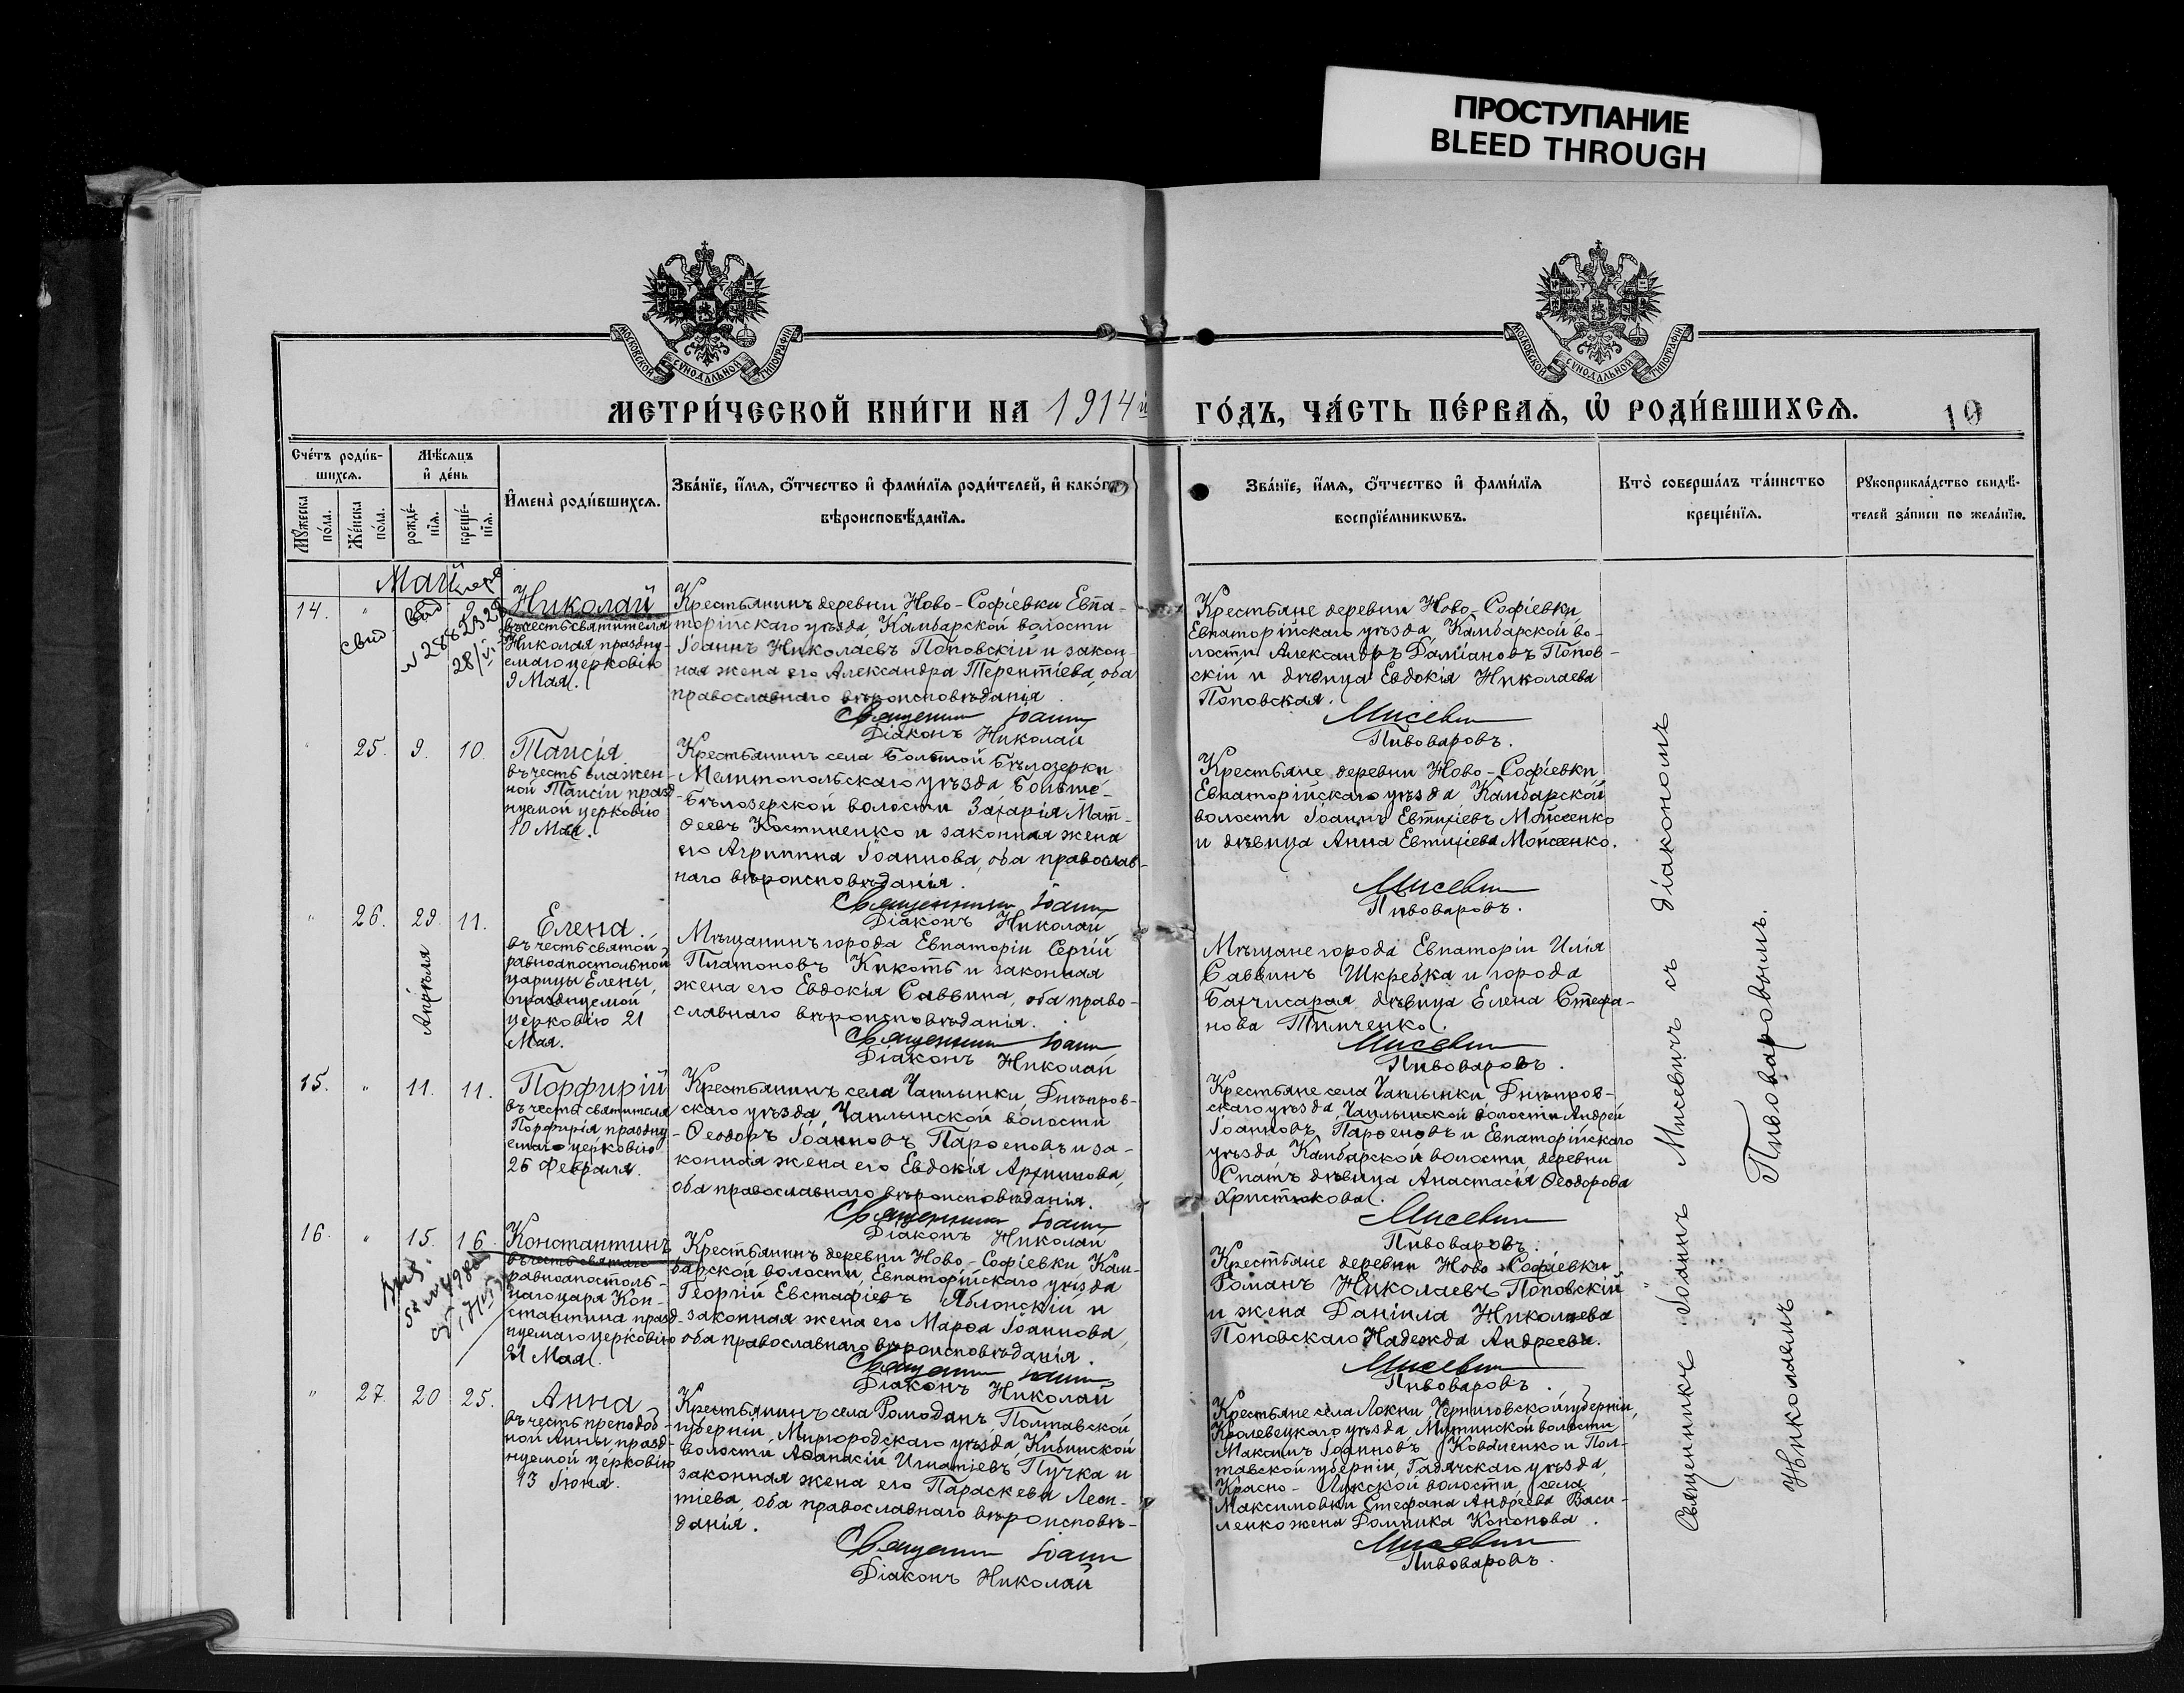 ПРОСТУПАНИЕ
BLEED THROUGH
МОСКОВСКОЙ СѴНОДАЛЬНОЙ ТИПОГРАФІИ
МОСКОВСКОЙ СѴНОДАЛЬНОЙ ТИПОГРАФІИ
МЕТРИ́ЧЕСКОЙ КНИ́ГИ НА 1914й ГО́ДЪ, ЧА́СТЬ ПЕ́РВАѦ, Ѽ РОДИ́ВШИХСѦ.
10
Сче́тъ роди́в-
шихсѧ.
Мѣ́сѧцъ
и҆ де́нь
Мꙋ́жеска
по́ла.
Же́нска
по́ла.
рожде́-
нїѧ.
креще́-
нїѧ.
И҆мена̀ роди́вшихсѧ.
Зва́нїе, и҆́мѧ, ѻ҆́тчество и҆ фами́лїѧ роди́телей, и҆ како́гѡ
вѣроисповѣ́данїѧ.
Зва́нїе, и҆́мѧ, ѻ҆́тчество и҆ фами́лїѧ
воспрїе́мникѡвъ.
Кто̀ соверша́лъ та́инство
креще́нїѧ.
Рꙋкоприкла́дство свидѣ́-
телей за́писи по жела́нїю.
Май
14.
"
9
Свид
Николай
въ честь святителя
Николая праздну-
емаго церковію
9 Мая.
Крестьянинъ деревни Ново-Софіевки Евпа-
торійскаго уѣзда, Камбарской волости
Іоаннъ Николаевъ Поповскій и закон-
ная жена его Александра Терентіева, оба
православнаго вѣроисповѣданія.
Священник Іоанн
Діаконъ Николай
Крестьяне деревни Ново-Софіевки,
Евпаторійскаго уѣзда, Камбарской во-
лости Александръ Даміановъ Попов-
скій и дѣвица Евдокія Николаева
Поповская.
Мисевич
Пивоваровъ.
"
25.
9.
10.
Таисія
въ честь блажен-
ной Таисіи празд-
нуемой церковію
10 Мая.
Крестьянинъ села Большой Бѣлозерки
Мелитопольскаго уѣзда Больше-
Бѣлозерской волости Захарія Мат-
ѳеевъ Костиненко и законная жена
его Агрипина Іоаннова, оба православ-
наго вѣроисповѣданія.
Священник Іоанн
Діаконъ Николай
Крестьяне деревни Ново-Софіевки
Евпаторійскаго уѣзда Камбарской
волости Іоаннъ Евтихіевъ Мойсеенко
и дѣвица Анна Евтихіева Мойсеенко.
Мисевич
Пивоваровъ.
"
26.
29.
Апрѣля
11.
Елена.
въ честь святой
равноапостольной
царицы Елены,
празднуемой
церковію 21
Мая.
Мѣщанинъ города Евпаторіи Сергій
Платоновъ Кикоть и законная
жена его Евдокія Саввина, оба право-
славнаго вѣроисповѣданія.
Священник Іоанн
Діаконъ Николай
Мѣщане города Евпаторіи Илія
Саввинъ Шкребка и города
Бахчисарая дѣвица Елена Стефа-
нова Тимченко.
Мисевич
Пивоваровъ.
15.
"
11.
11.
Порфирій
въ честь святителя
Порфирія праздну-
емаго церковію
26 Февраля.
Крестьянинъ села Чаплынки, Днѣпров-
скаго уѣзда, Чаплынской волости
Ѳеодоръ Іоанновъ Парѳеновъ и за-
конная жена его Евдокія Архипова,
оба православнаго вѣроисповѣданія.
Священник Іоанн
Діаконъ Николай
Крестьяне села Чаплынки, Днѣпров-
скаго уѣзда, Чаплынской волости Андрей
Іоанновъ Парѳеновъ и Евпаторійскаго
уѣзда Камбарской волости деревни
Спатъ дѣвица Анастасія Ѳеодорова
Христюкова.
Мисевич
Пивоваровъ.
16.
"
15.
16.
Константинъ
въ честь святаго
равноапостоль-
наго царя Кон-
стантина празд-
нуемаго церковію
21 Мая.
Крестьянинъ деревни Ново-Софіевки Кам-
барской волости, Евпаторійскаго уѣзда
Георгій Евстафіевъ Яблонскій и
законная жена его Марѳа Іоаннова,
оба православнаго вѣроисповѣданія.
Священник Іоанн
Діаконъ Николай
Крестьяне деревни Ново-Софіевки
Романъ Николаевъ Поповскій
и жена Даніила Николаева
Поповскаго Надежда Андреева.
Мисевич
Пивоваровъ.
"
27.
20
25.
Анна
въ честь преподоб-
ной Анны, празд-
нуемой церковію
13 Іюня.
Крестьянинъ села Ромоданъ Полтавской
губерніи, Миргородскаго уѣзда, Кибинской
волости Аѳанасій Игнатіевъ Пучка и
законная жена его Параскева Леон-
тіева, оба православнаго вѣроисповѣ-
данія.
Священник Іоанн
Діаконъ Николай
Крестьяне села Локни, Черниговской губерніи,
Кролевецкаго уѣзда, Мутинской волости
Максимъ Іоанновъ Коваленко и Пол-
тавской губерніи, Гадячскаго уѣзда,
Красно-Лукской волости, села
Максимовки Стефана Андреева Васи-
ленко жена Домника Кононова.
Мисевич
Пивоваровъ.
Священникъ Іоаннъ Мисевичъ съ діакономъ
Николаемъ Пивоваровымъ.